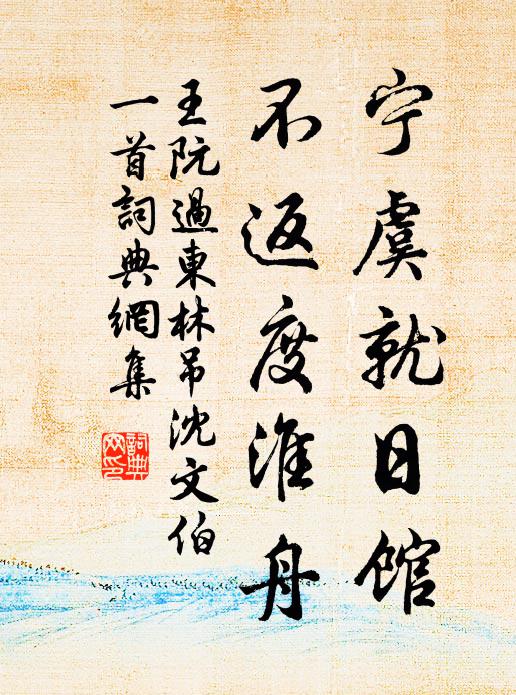 宁虞就日馆
不返度淮舟
王阮過東林吊沈文伯
一首詞典網集
詞典網印